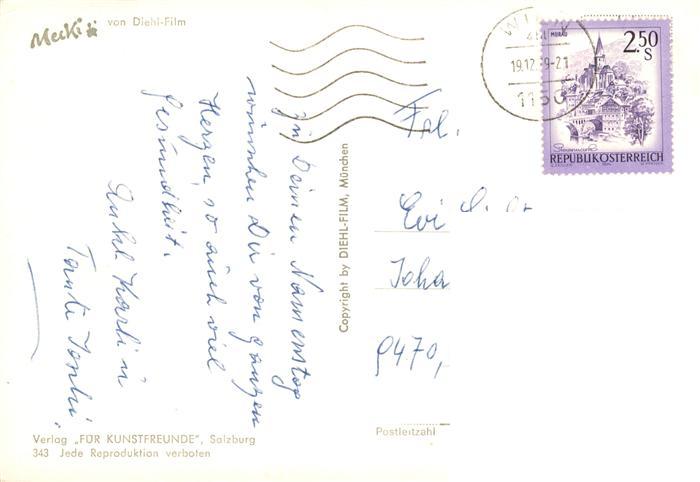 Mecki von Diehl-Film
zu Deinem Namenstag
wünschen Dir von ganzen
Herzen, so auch viel
Gesundheit.
Onkel Karli u
Tante
Verlag „FÜR KUNSTFREUNDE", Salzburg
343 Jede Reproduktion verboten
Copyright by DIEHL-FILM, München
WIEN
19.12.79-21
1150
MURAU
2.50
S
Steiermark
REPUBLIK ÖSTERREICH
Frl.
Evi
Joha
9470,
Postleitzahl